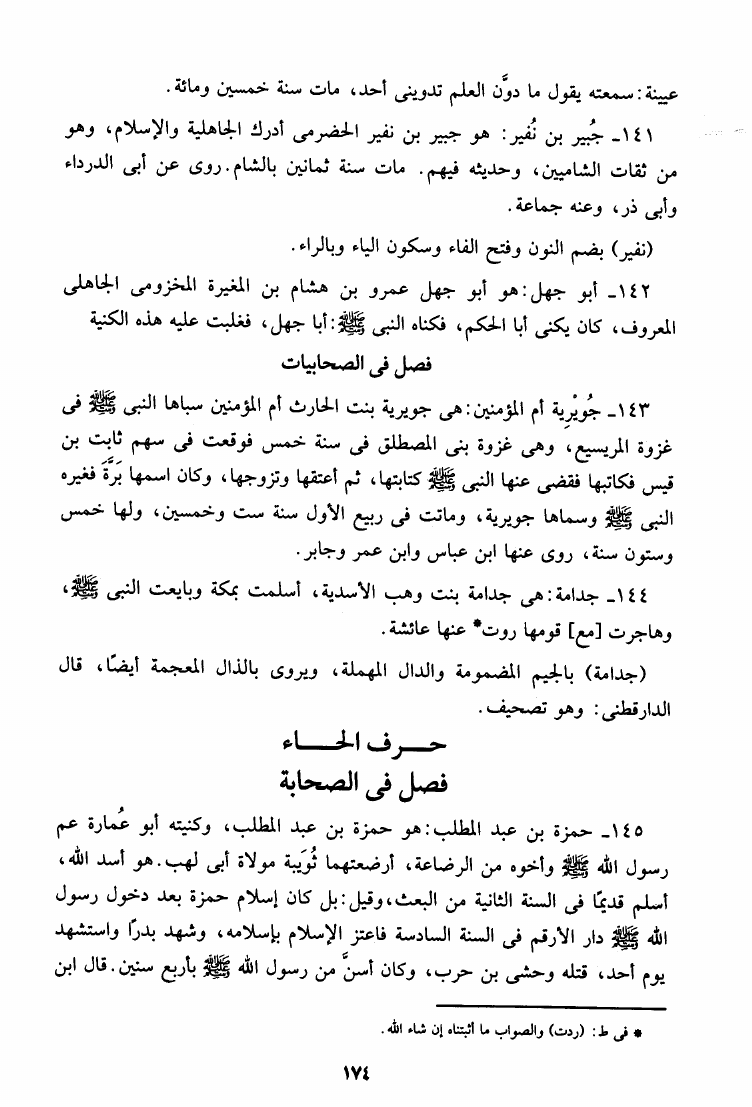 عيينة: سمعته يقول ما دوَّن العلم تدوينى أحد، مات سنة خمسين ومائة.
١٤١ـ جُبير بن نُفير: هو جبير بن نفير الحضرمى أدرك الجاهلية والإسلام، وهو
من ثقات الشاميين، وحديثه فيهم. مات سنة ثمانين بالشام. روى عن أبى الدرداء
وأبى ذر، وعنه جماعة.
(نفير) بضم النون وفتح الفاء وسكون الياء وبالراء.
١٤٢ـ أبو جهل: هو أبو جهل عمرو بن هشام بن المغيرة المخزومى الجاهلى
المعروف، كان يكنى أبا الحكم، فكناه النبى ﷺ: أبا جهل، فغلبت عليه هذه الكنية
فصل فى الصحابيات
١٤٣ـ جُويْرِية أم المؤمنين: هى جويرية بنت الحارث أم المؤمنين سباها النبى ﷺ فى
غزوة المريسيع، وهى غزوة بنى المصطلق فى سنة خمس فوقعت فى سهم ثابت بن
قيس فكاتبها فقضى عنها النبى ﷺ كتابتها، ثم أعتقها وتزوجها، وكان اسمها بَرَّةَ فغيره
النبى ﷺ وسماها جويرية، وماتت فى ربيع الأول سنة ست وخمسين، ولها خمس
وستون سنة، روى عنها ابن عباس وابن عمر وجابر.
١٤٤ـ جدامة: هى جدامة بنت وهب الأسدية، أسلمت بمكة وبايعت النبى ﷺ،
وهاجرت [مع] قومها روت* عنها عائشة.
(جدامة) بالجيم المضمومة والدال المهملة، ويروى بالذال المعجمة أيضًا، قال
الدارقطنى: وهو تصحيف.
حـــرف الحـــاء
فصل فى الصحابة
١٤٥ـ حمزة بن عبد المطلب: هو حمزة بن عبد المطلب، وكنيته أبو عُمارة عم
رسول الله ﷺ وأخوه من الرضاعة، أرضعتهما ثُوَيبة مولاة أبى لهب. هو أسد الله،
أسلم قديمًا فى السنة الثانية من البعث، وقيل: بل كان إسلام حمزة بعد دخول رسول
الله ﷺ دار الأرقم فى السنة السادسة فاعتز الإسلام بإسلامه، وشهد بدرًا واستشهد
يوم أحد، قتله وحشى بن حرب، وكان أسنَّ من رسول الله ﷺ بأربع سنين. قال ابن
* فى ط: (ردت) والصواب ما أثبتناه إن شاء الله.
١٧٤